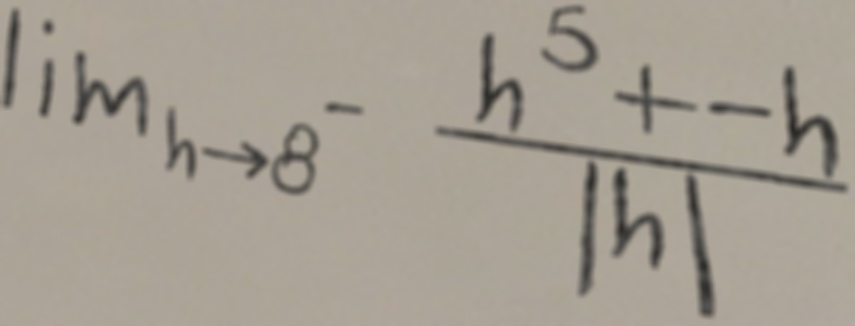 lim_{h→8^-} \frac{h^5 + -h}{|h|}